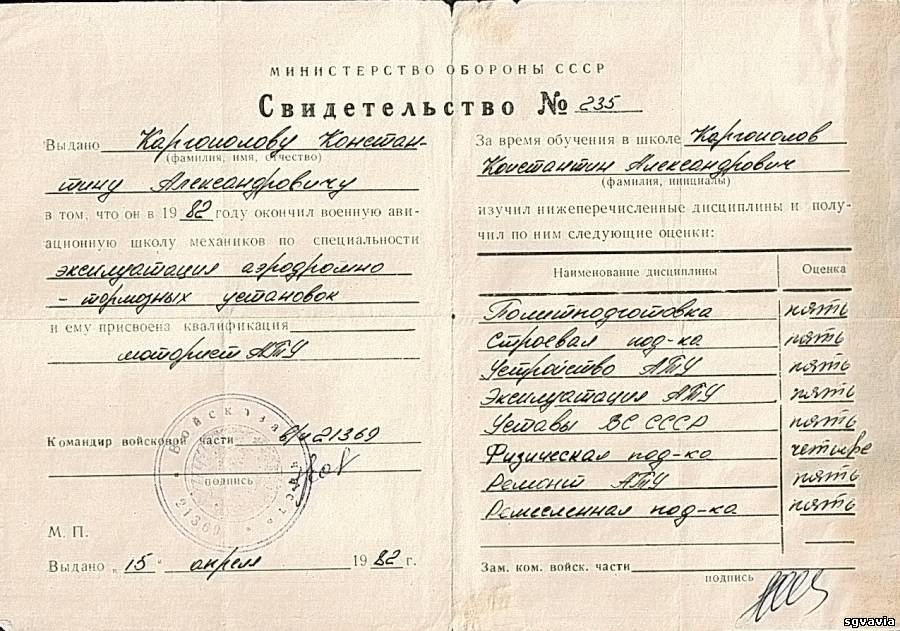 МИНИСТЕРСТВО ОБОРОНЫ СССР
Свидетельство № 235
Выдано Каргополову Констан-
(фамилия, имя, отчество)
тину Александровичу
в том, что он в 1982 году окончил военную ави-
ационную школу механиков по специальности
эксплуатация аэродромно
- тормозных установок
и ему присвоена квалификация
моторист АТУ
Командир войсковой части в/ч 21369
подпись
Войсковая часть
21369
М. П.
Выдано „15" апреля 1982 г.
За время обучения в школе Каргополов
Константин Александрович
(фамилия, инициалы)
изучил нижеперечисленные дисциплины и полу-
чил по ним следующие оценки:
Наименование дисциплины Оценка
Политподготовка пять
Строевая под-ка пять
Устройство АТУ пять
Эксплуатация АТУ пять
Уставы ВС СССР пять
Физическая под-ка четыре
Ремонт АТУ пять
Ремесленная под-ка пять
Зам. ком. войск. части
подпись
sgvavia